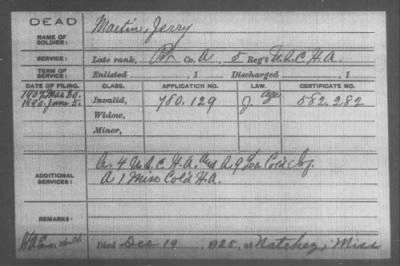 DEAD
NAME OF SOLDIER: Martin, Jerry
SERVICE: Late rank, Pvt Co. A, 5 Reg't U.S.C.H.A.
TERM OF SERVICE: Enlisted , 1 Discharged , 1
DATE OF FILING. CLASS. APPLICATION NO. LAW. CERTIFICATE NO.
1907 Mar 30. age
1890 June 5. Invalid, 780.129 J 562.282
Widow,
Minor,
ADDITIONAL SERVICES: A. 4 U.S.C.H.A. and A. 9 La Cold Inf.
A 1 Miss Cold H.A.
REMARKS:
Died Dec 19, 1925, at Natchez, Miss